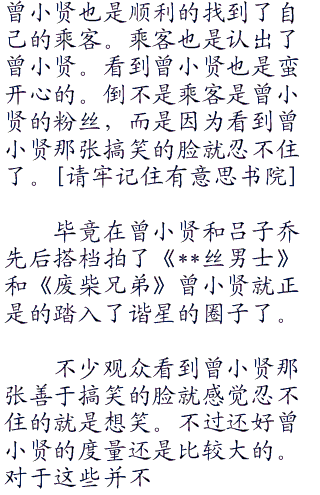 曾小贤也是顺利的找到了自
己的乘客。乘客也是认出了
曾小贤。看到曾小贤也是蛮
开心的。倒不是乘客是曾小
贤的粉丝，而是因为看到曾
小贤那张搞笑的脸就忍不住
了。[请牢记住有意思书院]
毕竟在曾小贤和吕子乔
先后搭档拍了《**丝男士》
和《废柴兄弟》曾小贤就正
是的踏入了谐星的圈子了。
不少观众看到曾小贤那
张善于搞笑的脸就感觉忍不
住的就是想笑。不过还好曾
小贤的度量还是比较大的。
对于这些并不